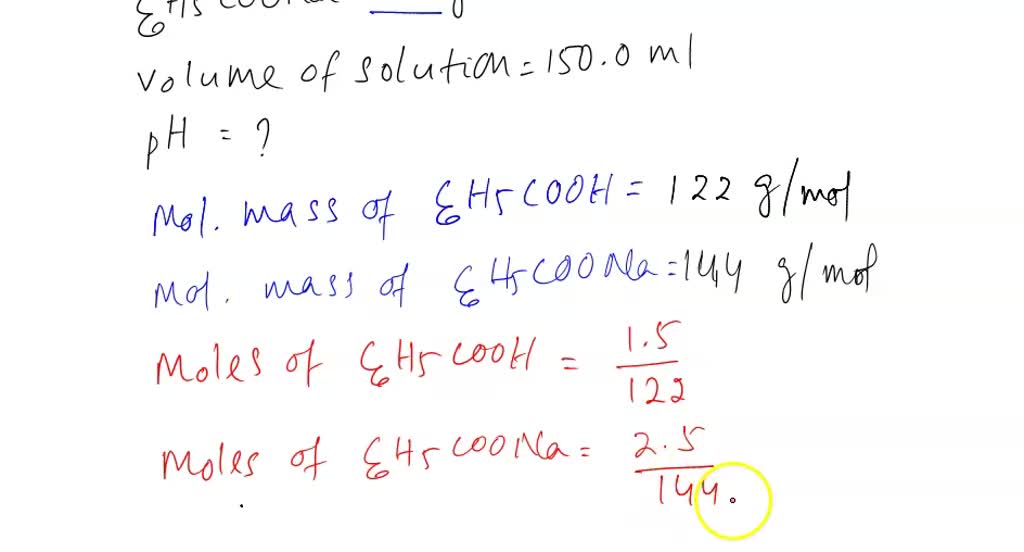 C6H5COONa
volume of solution = 150.0 ml
pH = ?
Mol. mass of C6H5COOH = 122 g/mol
Mol. mass of C6H5COONa = 144 g/mol
Moles of C6H5COOH = 1.5/122
Moles of C6H5COONa = 2.5/144